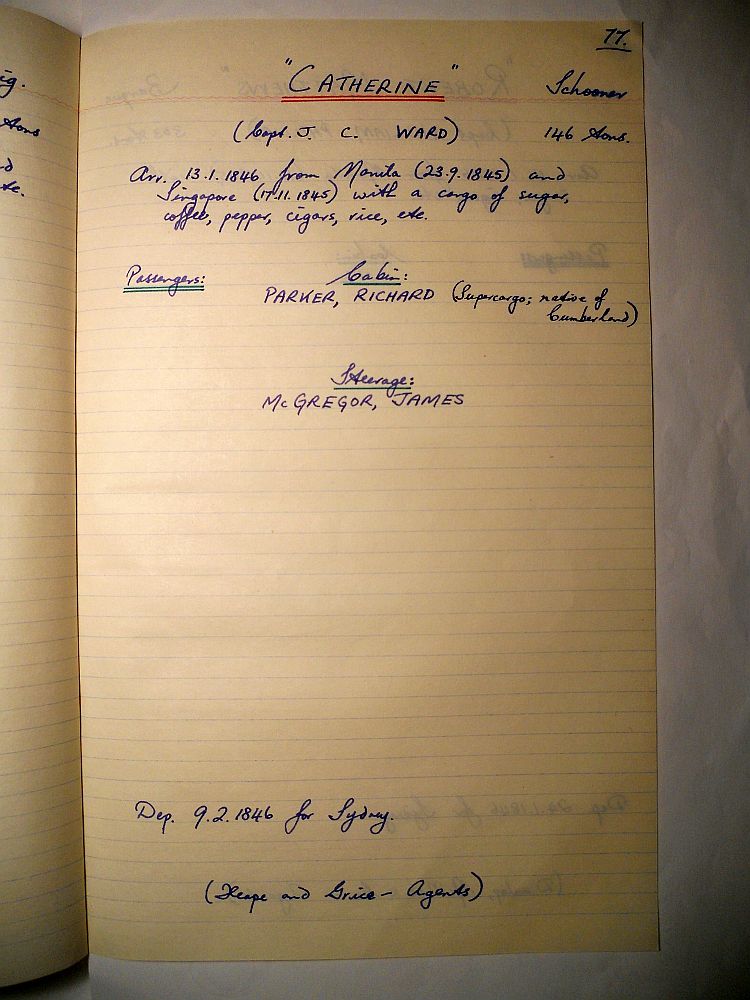 77.
"CATHERINE" Schooner
(Capt. J. C. WARD) 146 tons.
Arr. 13.1.1846 from Manila (23.9.1845) and
Singapore (17.11.1845) with a cargo of sugar,
coffee, pepper, cigars, rice, etc.
Passengers: Cabin:
PARKER, RICHARD (Supercargo; native of
Cumberland)
Steerage:
McGREGOR, JAMES
Dep. 9.2.1846 for Sydney.
(Heape and Grice - Agents)
ig.
tons